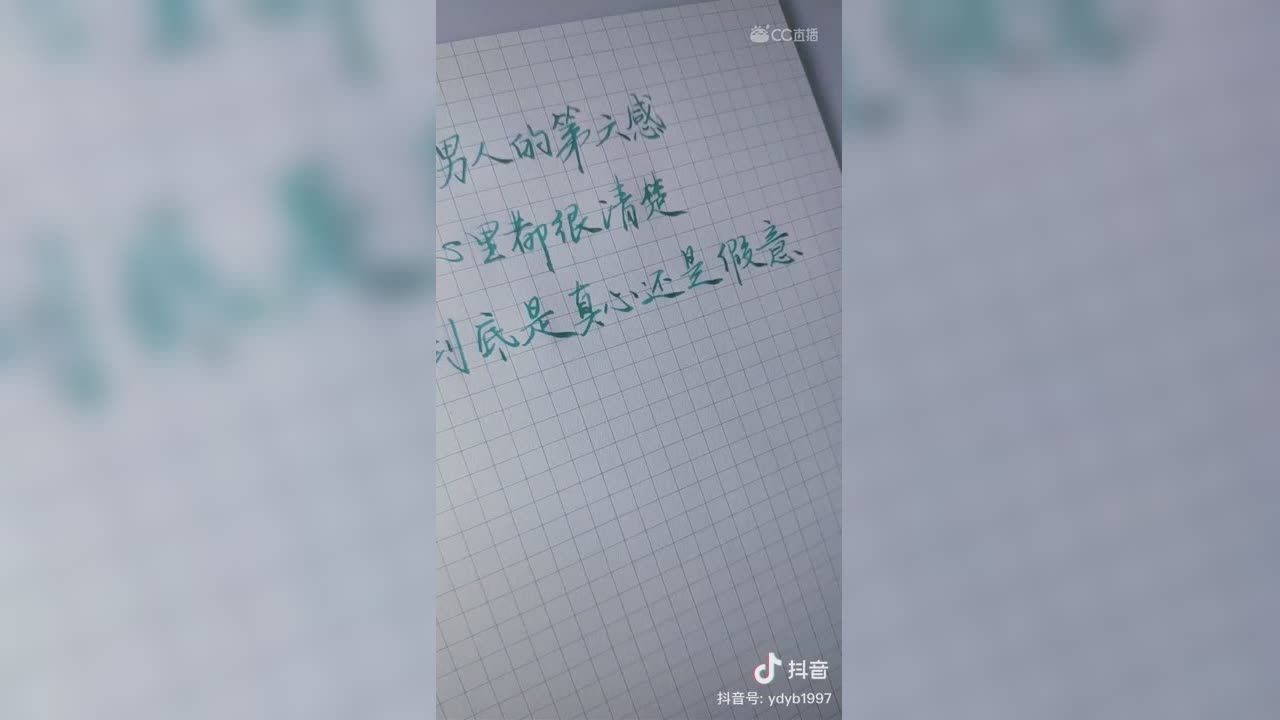 CC直播
男人的第六感
心里都很清楚
到底是真心还是假意
抖音
抖音号: ydyb1997